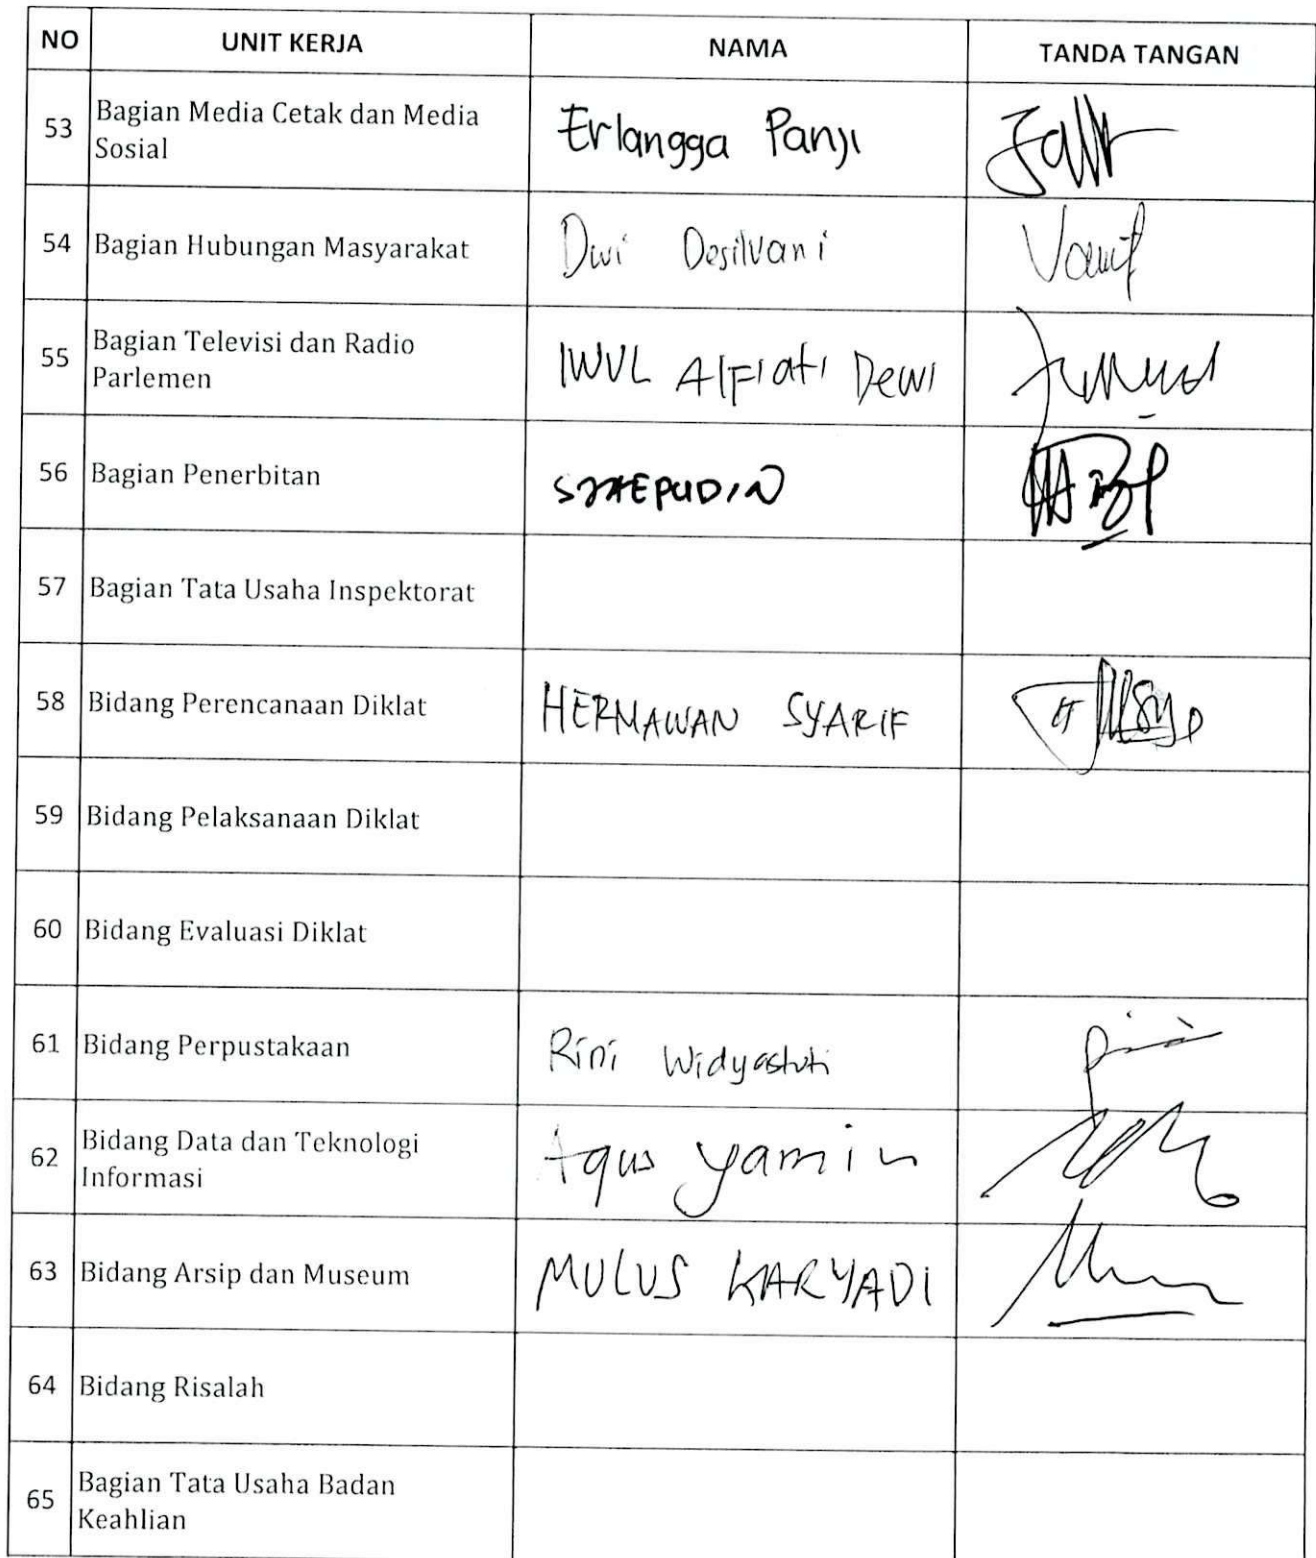 NO UNIT KERJA NAMA TANDA TANGAN
53 Bagian Media Cetak dan Media Sosial Erlangga Panji
54 Bagian Hubungan Masyarakat Dwi Desilvani
55 Bagian Televisi dan Radio Parlemen Alfiati Dewi
56 Bagian Penerbitan
57 Bagian Tata Usaha Inspektorat
58 Bidang Perencanaan Diklat HERMAWAN SYARIF
59 Bidang Pelaksanaan Diklat
60 Bidang Evaluasi Diklat
61 Bidang Perpustakaan Rini Widyastuti
62 Bidang Data dan Teknologi Informasi Agus yamin
63 Bidang Arsip dan Museum MULUS KARYADI
64 Bidang Risalah
65 Bagian Tata Usaha Badan Keahlian